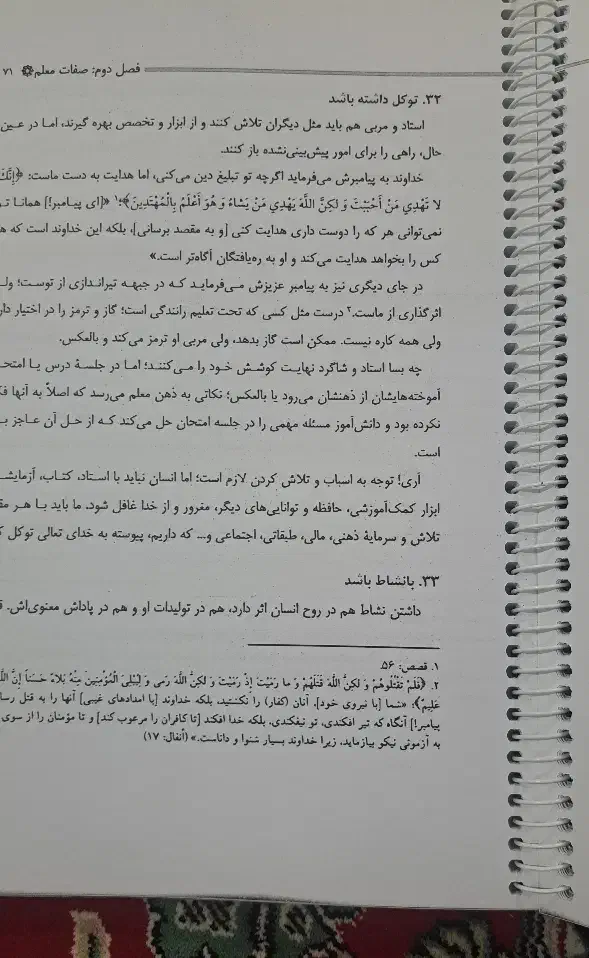 فصل دوم: صفات معلم ۷۱
۳۲. توکل داشته باشد
استاد و مربی هم باید مثل دیگران تلاش کنند و از ابزار و تخصص بهره گیرند، اما در عین
حال، راهی را برای امور پیش‌بینی‌نشده باز کنند.
خداوند به پیامبرش می‌فرماید اگرچه تو تبلیغ دین می‌کنی، اما هدایت به دست ماست: ﴿إِنَّكَ
لا تَهْدِي مَنْ أَحْبَبْتَ وَ لكِنَّ اللَّهَ يَهْدِي مَنْ يَشاءُ وَ هُوَ أَعْلَمُ بِالْمُهْتَدِينَ﴾؛۱ «[ای پیامبر!] همانا
نمی‌توانی هر که را دوست داری هدایت کنی [و به مقصد برسانی]، بلکه این خداوند است که
کس را بخواهد هدایت می‌کند و او به ره‌یافتگان آگاه‌تر است.»
در جای دیگری نیز به پیامبر عزیزش می‌فرماید که در جبهه تیراندازی از توست؛
اثرگذاری از ماست.۲ درست مثل کسی که تحت تعلیم رانندگی است؛ گاز و ترمز را در اختیار
ولی همه کاره نیست. ممکن است گاز بدهد، ولی مربی او ترمز می‌کند و بالعکس.
چه بسا استاد و شاگرد نهایت کوشش خود را می‌کنند؛ اما در جلسهٔ درس یا
آموخته‌هایشان از ذهنشان می‌رود یا بالعکس؛ نکاتی به ذهن معلم می‌رسد که اصلاً به آنها
نکرده بود و دانش‌آموز مسئله مهمی را در جلسه امتحان حل می‌کند که از حل آن عاجز
است.
آری! توجه به اسباب و تلاش کردن لازم است؛ اما انسان نباید با استاد، کتاب،
ابزار کمک‌آموزشی، حافظه و توانایی‌های دیگر، مغرور و از خدا غافل شود. ما باید با هر
تلاش و سرمایهٔ ذهنی، مالی، طبقاتی، اجتماعی و... که داریم، پیوسته به خدای تعالی توکل
۳۳. بانشاط باشد
داشتن نشاط هم در روح انسان اثر دارد، هم در تولیدات او و هم در پاداش معنوی‌اش.
۱. قصص: ۵۶.
۲. ﴿فَلَمْ تَقْتُلُوهُمْ وَ لكِنَّ اللَّهَ قَتَلَهُمْ وَ ما رَمَيْتَ إِذْ رَمَيْتَ وَ لكِنَّ اللَّهَ رَمى وَ لِيُبْلِيَ الْمُؤْمِنِينَ مِنْهُ بَلاءً حَسَناً إِنَّ
عَلِيمٌ﴾؛ «شما [با نیروی خود]، آنان (کفار) را نکشتید، بلکه خداوند [با امدادهای غیبی] آنها را به قتل
پیامبر!] آنگاه که تیر افکندی، تو نیفکندی، بلکه خدا افکند [تا کافران را مرعوب کند] و تا مؤمنان را از سوی
به آزمونی نیکو بیازماید، زیرا خداوند بسیار شنوا و داناست.» (أنفال: ۱۷)